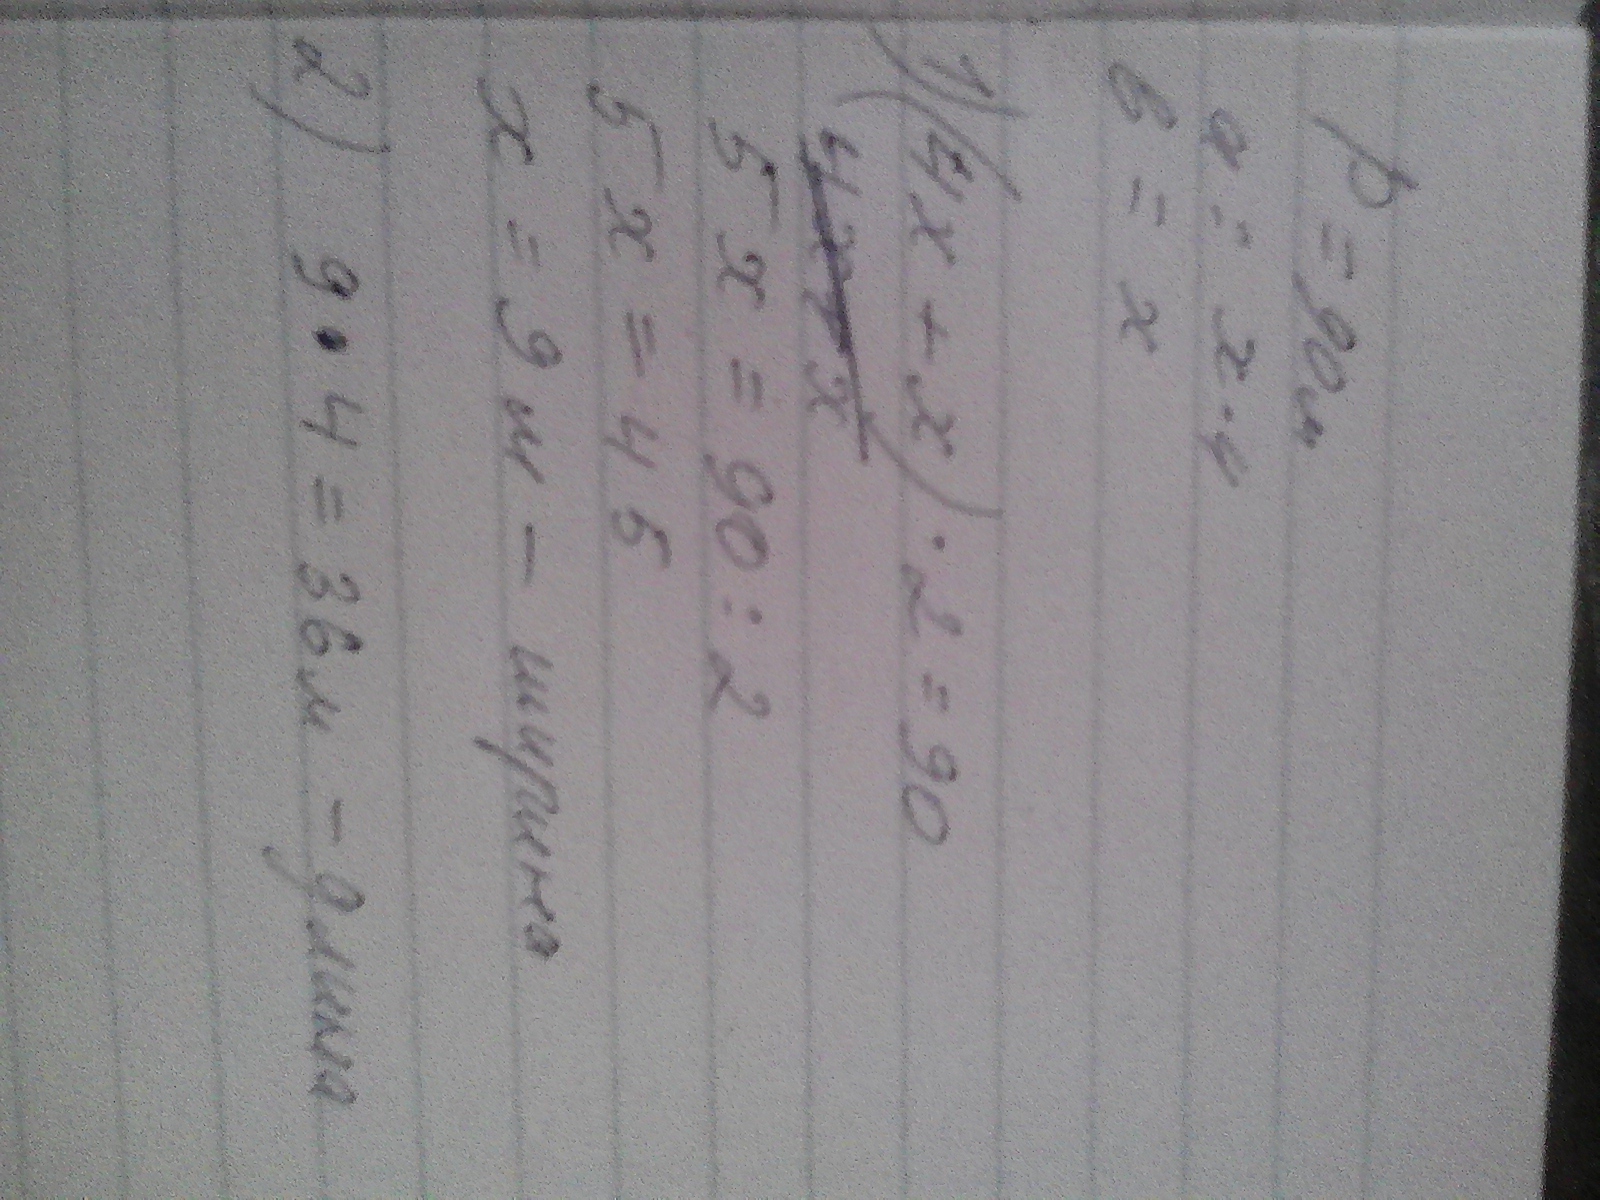 p = 90м
a = x · 4
в = x
1) (4x + x) · 2 = 90
4x + x
5x = 90 : 2
5x = 45
x = 9 м - ширина
2) 9 · 4 = 36м - длина